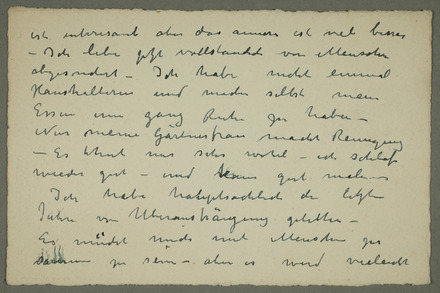 ist interessant aber das annere ist viel besser
– Ich lebe jetzt vollständig von Menschen
abgesondert – Ich habe nicht einmal
Haushälterin und mache selbst mein
Essen um ganz Ruhe zu haben –
Nur meine Gärtnersfrau macht Reinigung
– Es thut mir sehr wohl – ich schlafe
wieder gut – und kann gut malen
Ich habe hauptsächlich die letzten
Jahre von Überanstrengung gelitten –
Es müdet mich mit Menschen zu
zu sein – aber es wird vielleicht